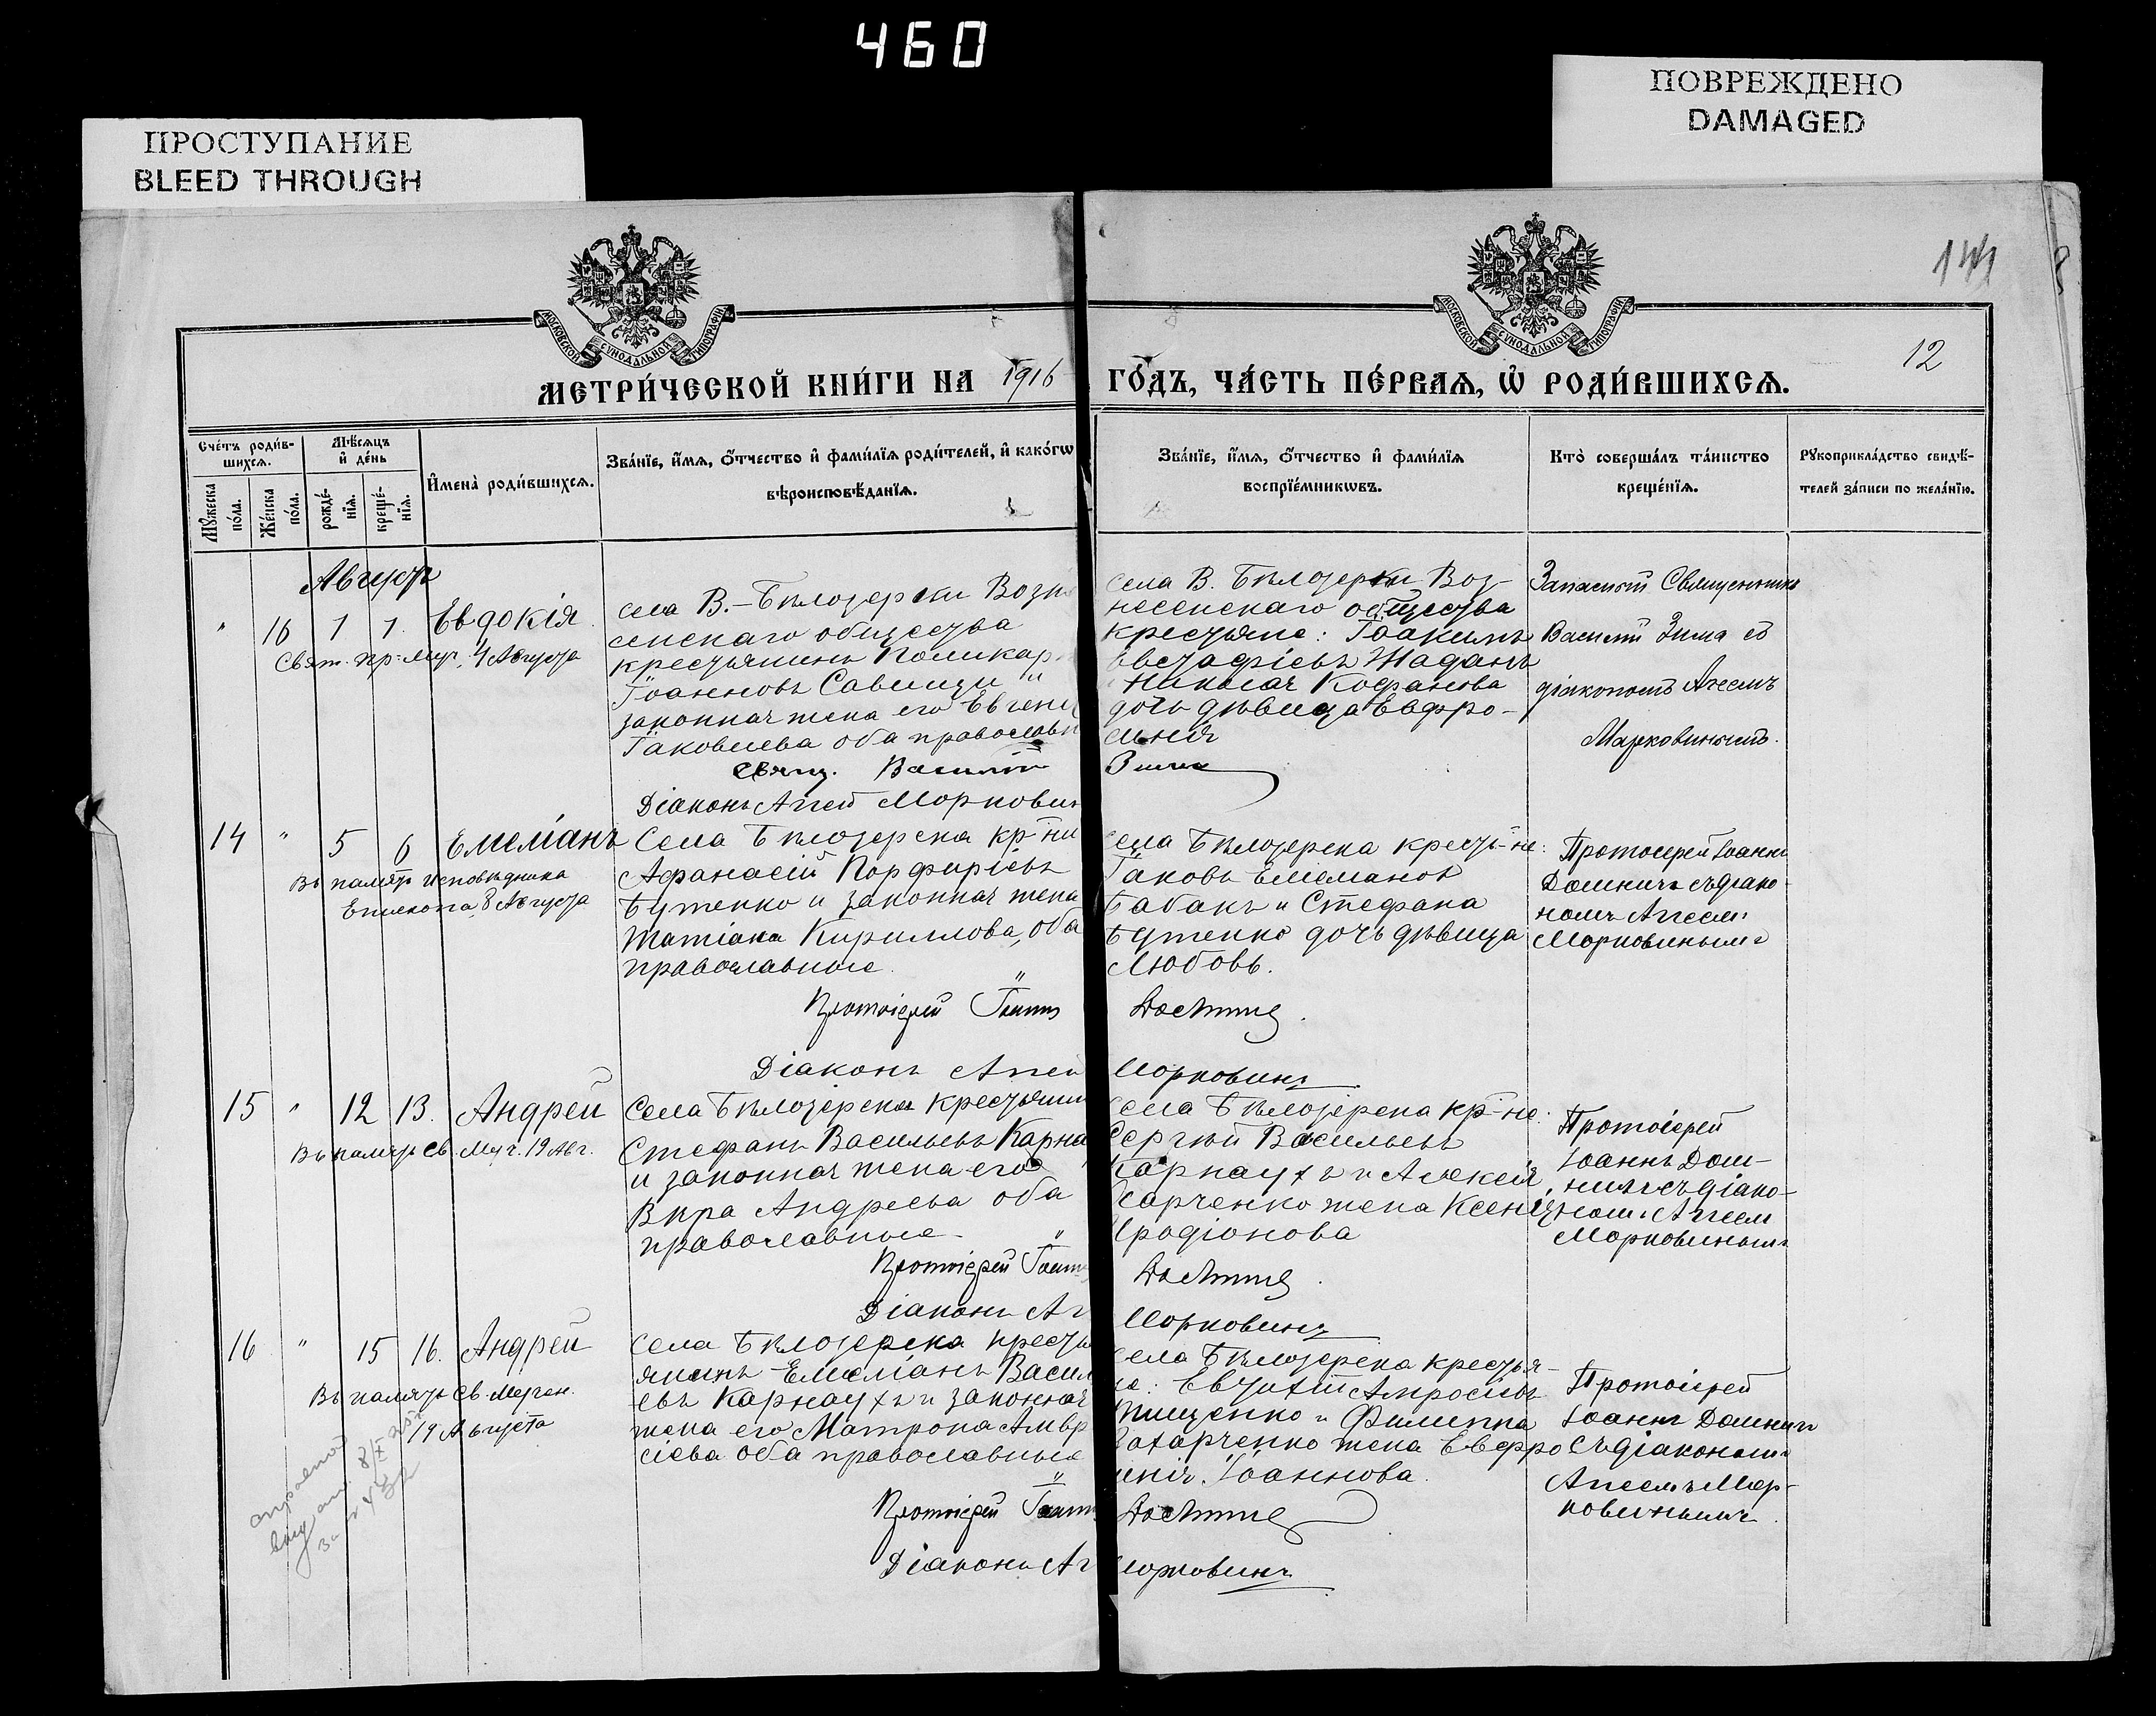 460
ПРОСТУПАНИЕ
BLEED THROUGH
ПОВРЕЖДЕНО
DAMAGED
144
8
МОСКОВСКОЙ СѴНОДАЛЬНОЙ ТИПОГРАФІИ
МОСКОВСКОЙ СѴНОДАЛЬНОЙ ТИПОГРАФІИ
12
МЕТРИ́ЧЕСКОЙ КНИ́ГИ НА 1916
ГО́ДЪ, ЧА́СТЬ ПЕ́РВАЯ, Ѡ҆ РОДИ́ВШИХСЯ.
Сче́тъ роди́в-
шихся.
Мѣ́сяцъ
и҆ де́нь
Мꙋ́жеска
по́ла.
Же́нска
по́ла.
рожде́-
нїя.
креще́-
нїя.
И҆мена̀ роди́вшихся.
Зва́нїе, и҆́мя, ѻ҆́тчество и҆ фами́лїя роди́телей, и҆ како́гѡ
вѣроисповѣ́данїя.
Зва́нїе, и҆́мя, ѻ҆́тчество и҆ фами́лїя
воспрїе́мникѡвъ.
Кто̀ соверша́лъ та́инство
креще́нїя.
Рꙋкоприкла́дство свидѣ́-
телей за́писи по жела́нїю.
Августъ
" 16 1 1. Евдокія
Свят. пр-муч. 4 Августа
села В.-Бѣлозерки Возне
сенскаго общества
крестьянинъ Поликар
Іоанновъ Савицки и
законная жена его Евгені
Іаковлева оба православн
Свящ. Василій
Діаконъ Аггей Морковин
села В. Бѣлозерки Воз-
несенскаго общества
крестьяне: Іоакимъ
Евстафіевъ Жаданъ
Николая Кофанова
дочь дѣвица Евфро-
синія
Зима
Запасный Священникъ
Василій Зима съ
діакономъ Аггеемъ
Марковинымъ.
14 " 5 6 Емеліанъ
Въ память исповѣдника
Епископа, 8 Августа
Села Бѣлозерка кр-нъ
Афанасій Порфиріевъ
Бутенко и законная жена
Татіана Кириллова, оба
православные.
Протоіерей Іоаннъ
Діаконъ Аггей
села Бѣлозерка крест-не:
Іаковъ Емеліановъ
Бабакъ и Стефана
Бутенко дочь дѣвица
Любовь.
Морковинъ
Протоіерей Іоаннъ
Домничъ съ діако-
номъ Аггеемъ
Морковинымъ
15 " 12 13. Андрей
Въ память св. муч. 19 Авг.
Села Бѣлозерка крестьянин
Стефанъ Васильевъ Карна
и законная жена его
Вѣра Андреева оба
православные.
Протоіерей Іоаннъ
Діаконъ Аг
села Бѣлозерка кр-не:
Сергѣй Васильевъ
Карнаухъ и Алексія
жена Ксенія
Иродіонова
Морковинъ
Протоіерей
Іоаннъ Дом-
ничъ съ діако-
номъ Аггеем
Морковинымъ
16 " 15 16. Андрей
Въ память св. мучен.
19 Августа
Села Бѣлозерка кресть
янинъ Емеліанъ Васил
евъ Карнаухъ и законная
жена его Матрона Амвр
сіева оба православные
Протоіерей Іоаннъ
Діаконъ Аг
села Бѣлозерка крестья-
не: Евтихій Амросіевъ
Тищенко и Филиппа
Захарченко жена Евфро
синія Іоаннова.
Морковинъ
Протоіерей
Іоаннъ Домничъ
съ діакономъ
Аггеемъ Мор-
ковинымъ